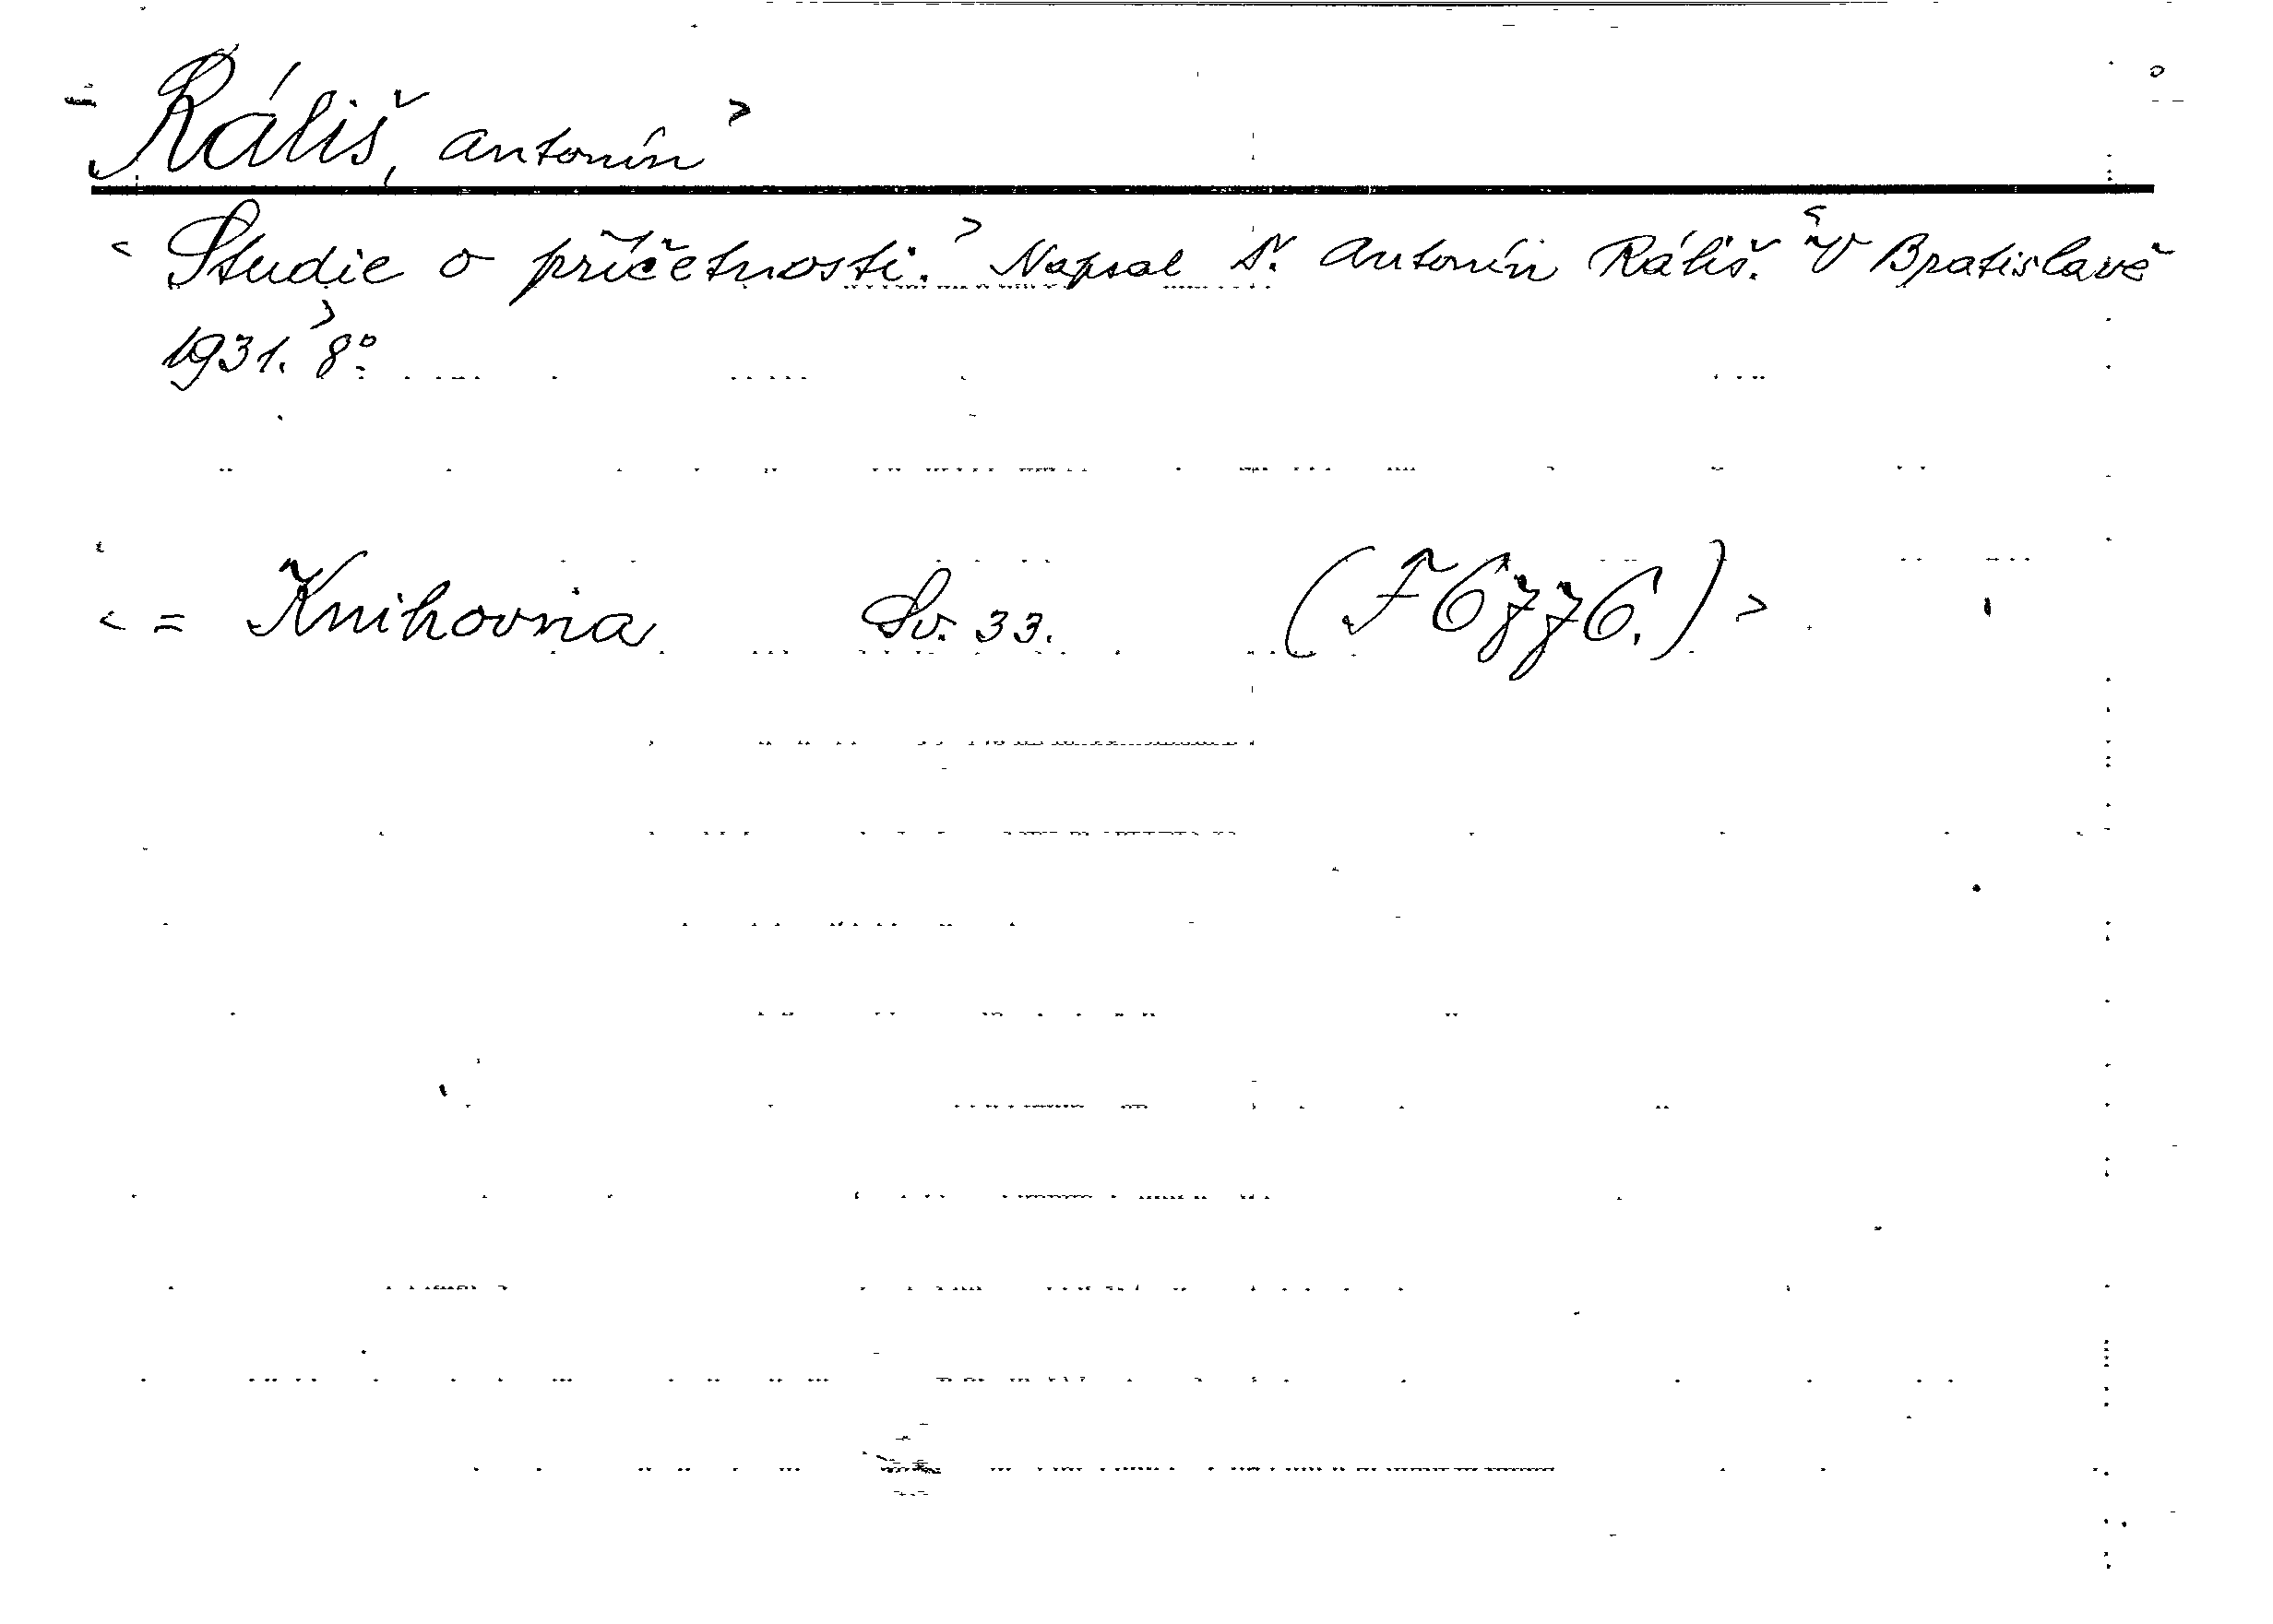 Ráliš, Antonín
Studie o příčetnosti. Napsal Dr. Antonín Ráliš. V Bratislavě
1931. 8°.
= Knihovna Sv. 33. (F 6776.)